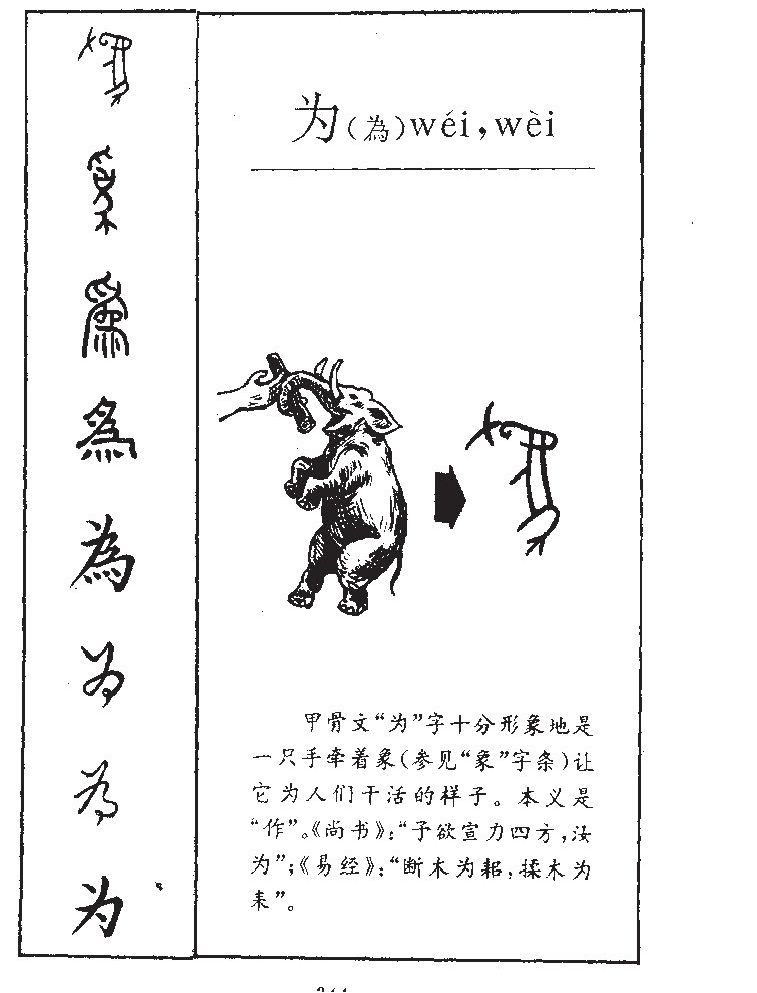 为（為）wéi，wèi
甲骨文“为”字十分形象地是
一只手牵着象（参见“象”字条）让
它为人们干活的样子。本义是
“作”。《尚书》：“予欲宣力四方，汝
为”；《易经》：“断木为耜，揉木为
耒”。
為
为